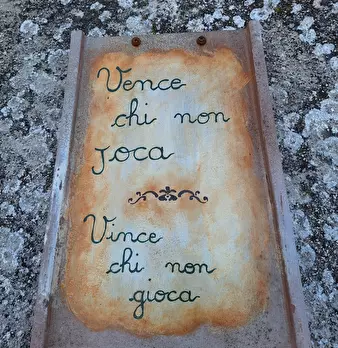 Vence
chi non
Joca
Vince
chi non
gioca